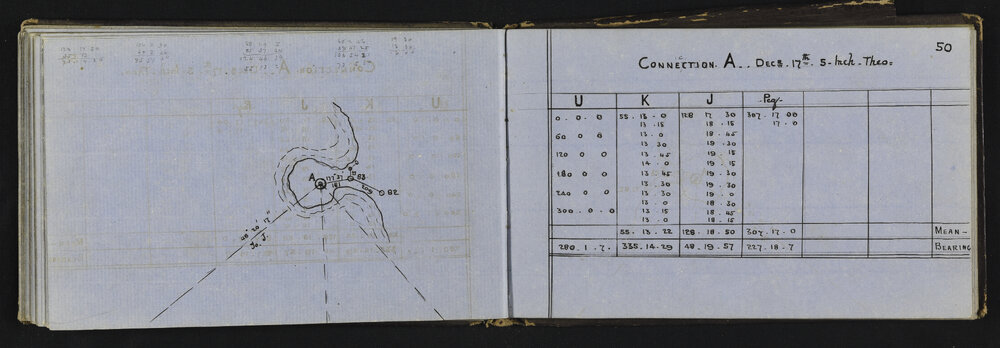 A
177'31
63
181
209
62
48° 20' 17"
To. J.
50
CONNECTION. A. DECR. 17th. 5-Inch-Theo.
U K J Peg.
0 . 0 . 0 55 . 13 . 0 128 17 30 307 . 17 00
13 . 15 18 . 15 17 . 0
60 0 0 13 . 0 18 . 45
13 30 19 . 30
120 0 0 13 . 45 19 15
14 . 0 19 . 15
180 0 0 13 45 19 . 30
13 . 30 19 . 30
240 0 0 13 . 30 19 . 0
13 . 0 18 . 30
300 . 0 . 0 13 . 15 18 . 45
13 . 0 18 . 15
55 . 13 . 22 128 . 18 . 50 307 . 17 . 0 MEAN -
280 . 1 . 7 . 335 . 14 . 29 48 . 19 . 57 227 . 18 . 7 BEARING